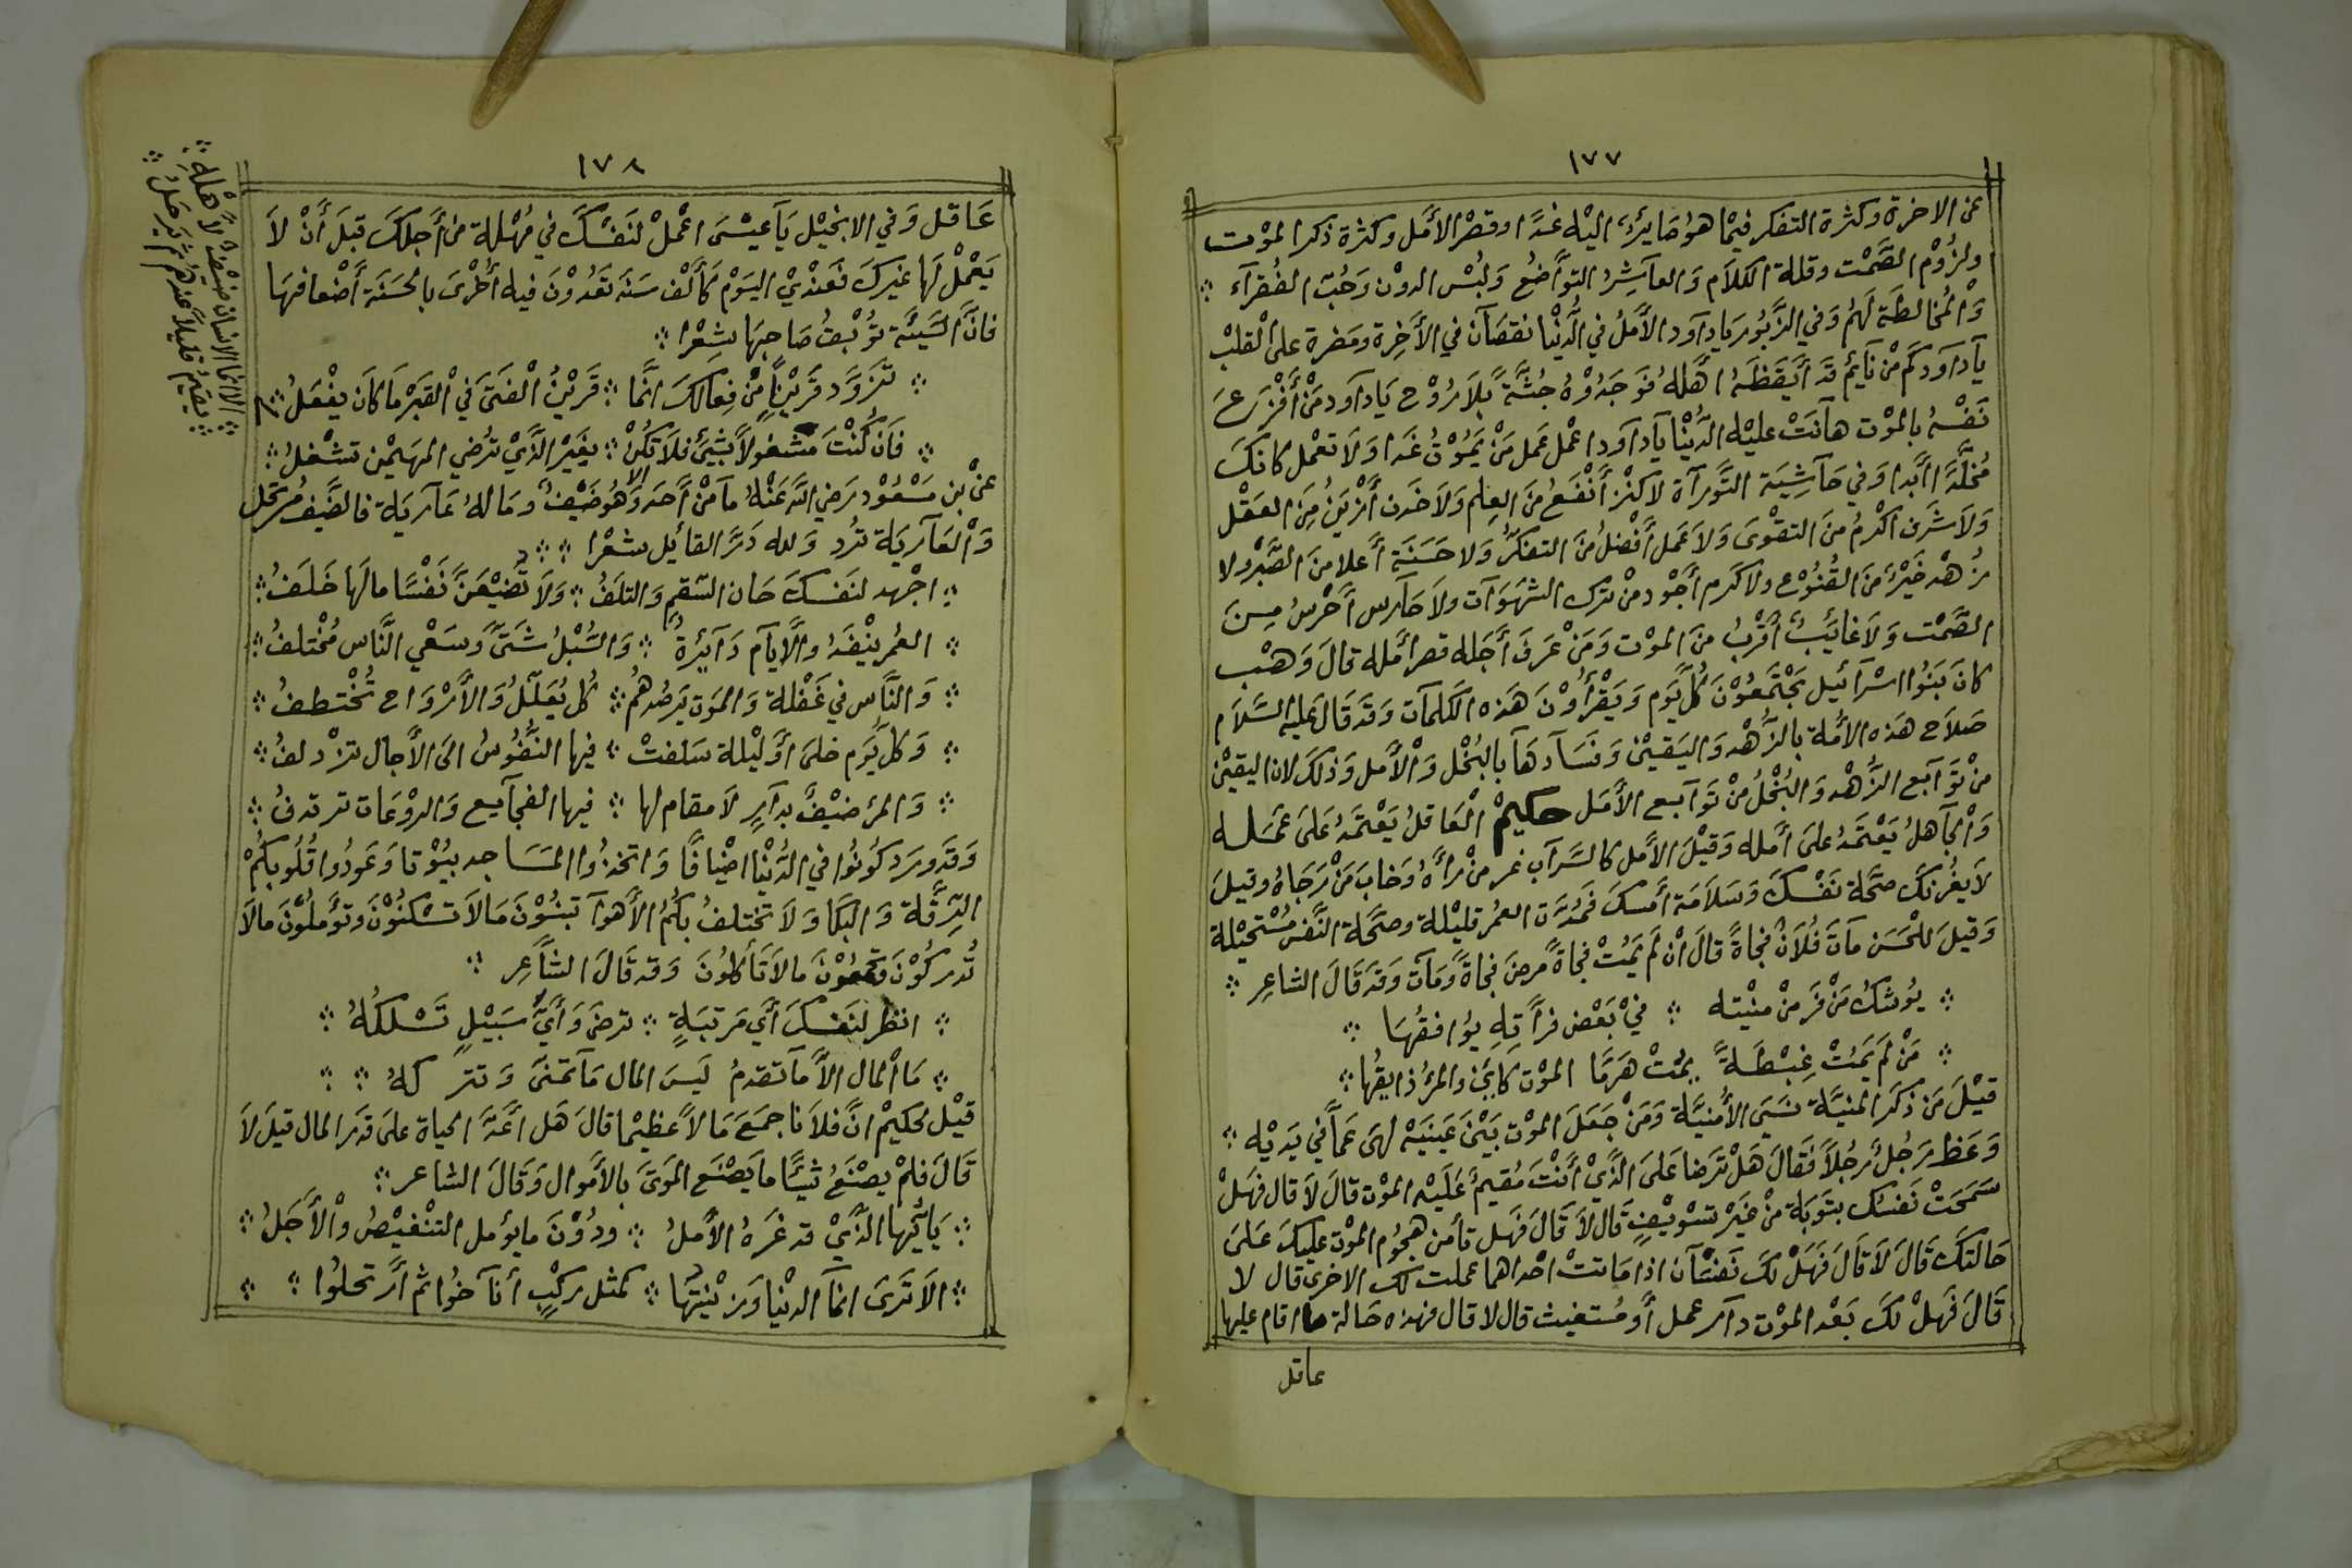 ١٧٧
عن الاخرة وكثرة التفكر فيما هُوَ صَايرٌ اليْه غدًا وقصْر الأمَل وكثرة ذكر الموْت
ولزُوْم الصَّمْت وقلة الكلاَم وَالعاشِرُ التوَاضُع وَلُبْس الدوْن وَحُبّ الفُقرآء
وَالمُخالطَة لَهُمْ وَفي الزَّبُور يَا داَود الأمَلُ في الدُّنْيا نقصَآن في الأخِرة ومَضرة على القلبْ
يآ داَود كَمْ مْن نَآئم قدَ أيَقَظَهُ اهَّلهُ فوَجَدُوْهُ جُثَّةً بِلاَ رُوْح يَا داَود مَنْ أفْزَعَ
نَفْسَهُ بالموْت هانَتْ عليْه الدُّنْيا يآ داَود اعْمل عَمل مَنْ يَمُوْتُ غَدا وَلاَ تعْمل كانكَ
مُخلَّدًا ابَدا وَفي حَاشِيَة التَّورآة لاَ كنْز أنْفَعُ مَن العِلم وَلاَ خَدن أزْيَنُ مِنَ العَقْل
وَلاَ شَرَف اكْرمُ منَ التقوَى وَلاَ عَمل أفْضَلُ منَ التفكرُّ وَلا حَسَنَة أعلا منَ الصَّبْر ولا
زُهْد خَيْرٌ منَ القُنُوْع ولا كرم أجْود منْ ترك الشهَوَآت ولاَ حَآرس أحْرسُ مِنَ
الصَّمْت وَلاَ غايَبٌ أقْربُ منَ الموْت وَمَنْ عَرفَ أجَله قصر أمَله قالَ وَهبْ
كانَ بَنُوا اسْرآئيل يَجْتَمعُوْنَ كُلَّ يَوم وَيَقْرَأوُنَ هَذه الكلمَآت وَقدَ قَالَ عَليه السَلاَم
صَلاَح هَذه الأمَّة بالزُّهْد وَاليَقيْن وَفسَآدهَا بالبُخْل وَالأمل وَذلكَ لان اليقيْن
منْ توَآبع الزُّهْد وَالبُخْلُ منْ توَآبع الأمَل حكيمْ الْعَاقلُ يَعْتَمدُ عَلىَ عَمَله
وَالجآهلُ يَعْتَمدُ علىَ أمَله وَقيْلَ الأمَل كالسَّرآب غر منْ رآهُ وَخابَ مَنْ رَجَاهُ وقيلَ
لاَ يغُرنكَ صحَّة نَفْسكَ وَسَلاَمَة أمْسكَ فَمُدَّة العمُر قليْلة وصَحَّة النَّفس مُسْتحيْلة
وَقيلَ للحَسَن مآتَ فُلاَنٌ فجاةً قالَ انْ لَم يَمُتْ فجاةً مرضَ فجاةً وَمَآت وَقدَ قَالَ الشاعِر
يوُشكُ مَنْ فرَ منْ منيْته في بَعْض غرآته يوُافقُهَا
مَنْ لَم يَمُتْ غِبْطَةً يمُتْ هَرَمًا الموْت كاسٌ والمرْءُ ذايقُهَا
قيْلَ مَن ذكَر المنيَّة نَسيَ الأُمنيَّة وَمَنْ جَعَلَ الموْت بَيْنَ عَيْنَيْه لهىَ عَمآ في يَديْه
وَعَظ رَجُلٌ رَجُلاً فقالَ هَلْ ترضَا عَلىَ الذَّيْ أنْتَ مُقيمٌ عَليْه الموْت قالَ لاَ قال فهَلْ
سَمَحَتْ نَفسُك بتَوَبَة منْ غيَرْ تسْويْفٍ قَال لاَ قَالَ فَهَل تأمن هجُوم الموْت عليكَ عَلىَ
حَالتكَ قَالَ لاَ قالَ فَهَلْ لكَ نَفسَآن اذا مَاتتْ احْداهما عملت لكَ الاخرى قال لا
قَالَ فَهَلْ لكَ بَعْد الموْت دآر عمل أو مُستغيث قال لا قال فهذه حَالة ما اقام عليها
عاقل
١٧٨
عَاقل وَفي الانجيْل يَآ عيسَى اعْملْ لنَفسكَ في مُهْلة من أجلكَ قبلَ أنْ لاَ
يَعْملْ لهَا غيركَ فعَنْديْ اليَوْم كَألْف سَنَة تعُدوْنَ فيه أخْرىَ بالحَسَنَة أضْعافهَا
فانَّ السَّيئَة توُبْقُ صَاحبهَا شِعْرا
تزَوَّد قَريْنًا مّن فِعالكَ انَّما قَريْنُ الفتَىَ في القَبْر مَا كَان يفْعَلُ
فَان كُنْتَ مَشْغولاً بشَيئ فلاَ تكُنْ بغيَر الذَّيْ ترُضي المهَيْمن تشْغلُ
عنْ بن مَسْعُوْد رَضي الله عَنْهُ مآ منْ أحَد الا وَهُوَ ضَيْفٌ وَمَالهُ عَآريَة فالضَّيفُ مُرتحل
وَالعَآريَة ترُد وَلله دَرَّ القائل شعْرا
اجْهد لنَفسكَ حَان السّقم وَالتلَفُ وَلاَ تُضَيعَنَّ نَفْسًا مالَهَا خَلَفُ
العُمر ينْفَدُ والأيآم دَآئِرةٌ وَالسُّبْلُ شَتىَّ وَسَعْي النَّاس مُخْتلفُ
وَالنَّاس في غَفْلة وَالموَت يَرصُدهُمْ كُل يُعَلّلُ وَالأرْوَاح تُخْتطفُ
وَكل يَوم خلىَ اوْ ليْلة سَلفتْ فيها النفُّوسُ الىَ الأجال تزْدلفُ
وَالمرْء ضيْفٌ بدَآرٍ لاَ مقام لها فيها الفجآيع وَالروْعَات ترتدفُ
وَقَد ورَد كوُنُوا في الدُّنْيا اضْيافًا وَاتخذوُا المسَاجد بيوُتا وَعَودُوا قُلُوبكُمْ
الرّقَّة وَالبكا وَلاَ تختلفُ بكُمُ الأهوآ تبنُوْنَ مَالاَ تسْكنُوْنَ وَتؤَملُوْنَ مالاَ
تُدركُوْنَ وَتجمعُوْنَ مالاَ تَأكلوُنَ وَقد قَالَ الشَّاعِر
انظر لنَفسكَ أيَ مَرتبَةٍ ترضَى وَأيَّ سَبيْلٍ تَسْلكُهُ
مَا المال الاَّ مآ تقدمُ ليَسَ المال مَآ تمَنىَّ وَتتركهُ
قيْل لحكيْم انَّ فلاَنا جمَعَ مَالاً عظيْما قالَ هَل أعَدَّ الحياة علىَ قدَر المال قيلَ لاَ
قَالَ فلمْ يصْنَعُ شيًّا ما يَصْنَع الموَتىَ بالأمَوال وَقَالَ الشاعر
يَا أيُّها الذَّيْ قد غَرَهُ الأمَلُ ودُوْنَ ما يؤمل التنْغيْصُ وْالأجَلُ
الاَ ترَىَ انمَّآ الدنْيا وَزيْنَتهَا كمثل ركْبٍ أنآخوُا ثم ارتحلوُا
الا انما الانسان ضيْفٌ لأهْلهِ
يقيمُ قليلاً عندهُم ثم يَرحَلُ